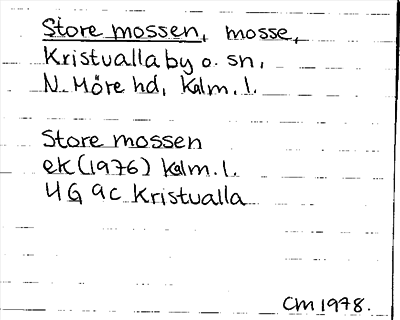 Store mossen, mosse,
Kristvalla by o. sn,
N. Möre hd, Kalm. l.
Store mossen
ek (1976) Kalm. l.
4G 9c Kristvalla
CM 1978.